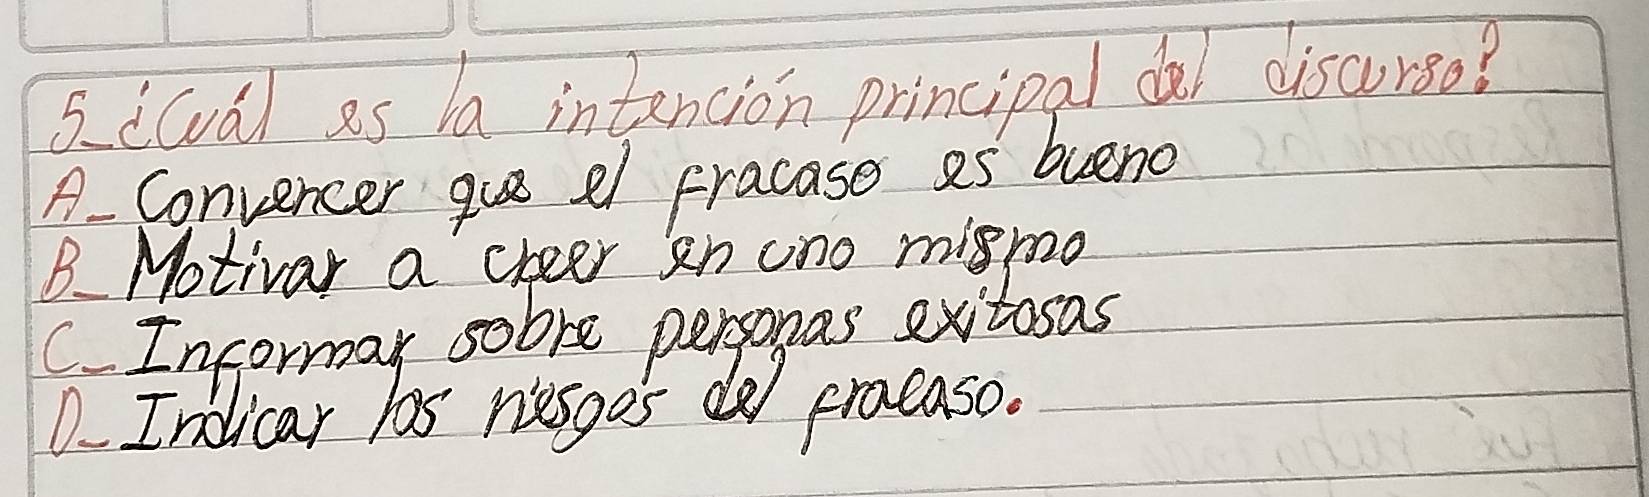 5-¿Cuál es la intención principal del discurso?
A- Convencer que el fracaso es bueno
B- Motivar a creer en uno mismo
C- Informar sobre personas exitosas
D- Indicar los riesgos del fracaso.